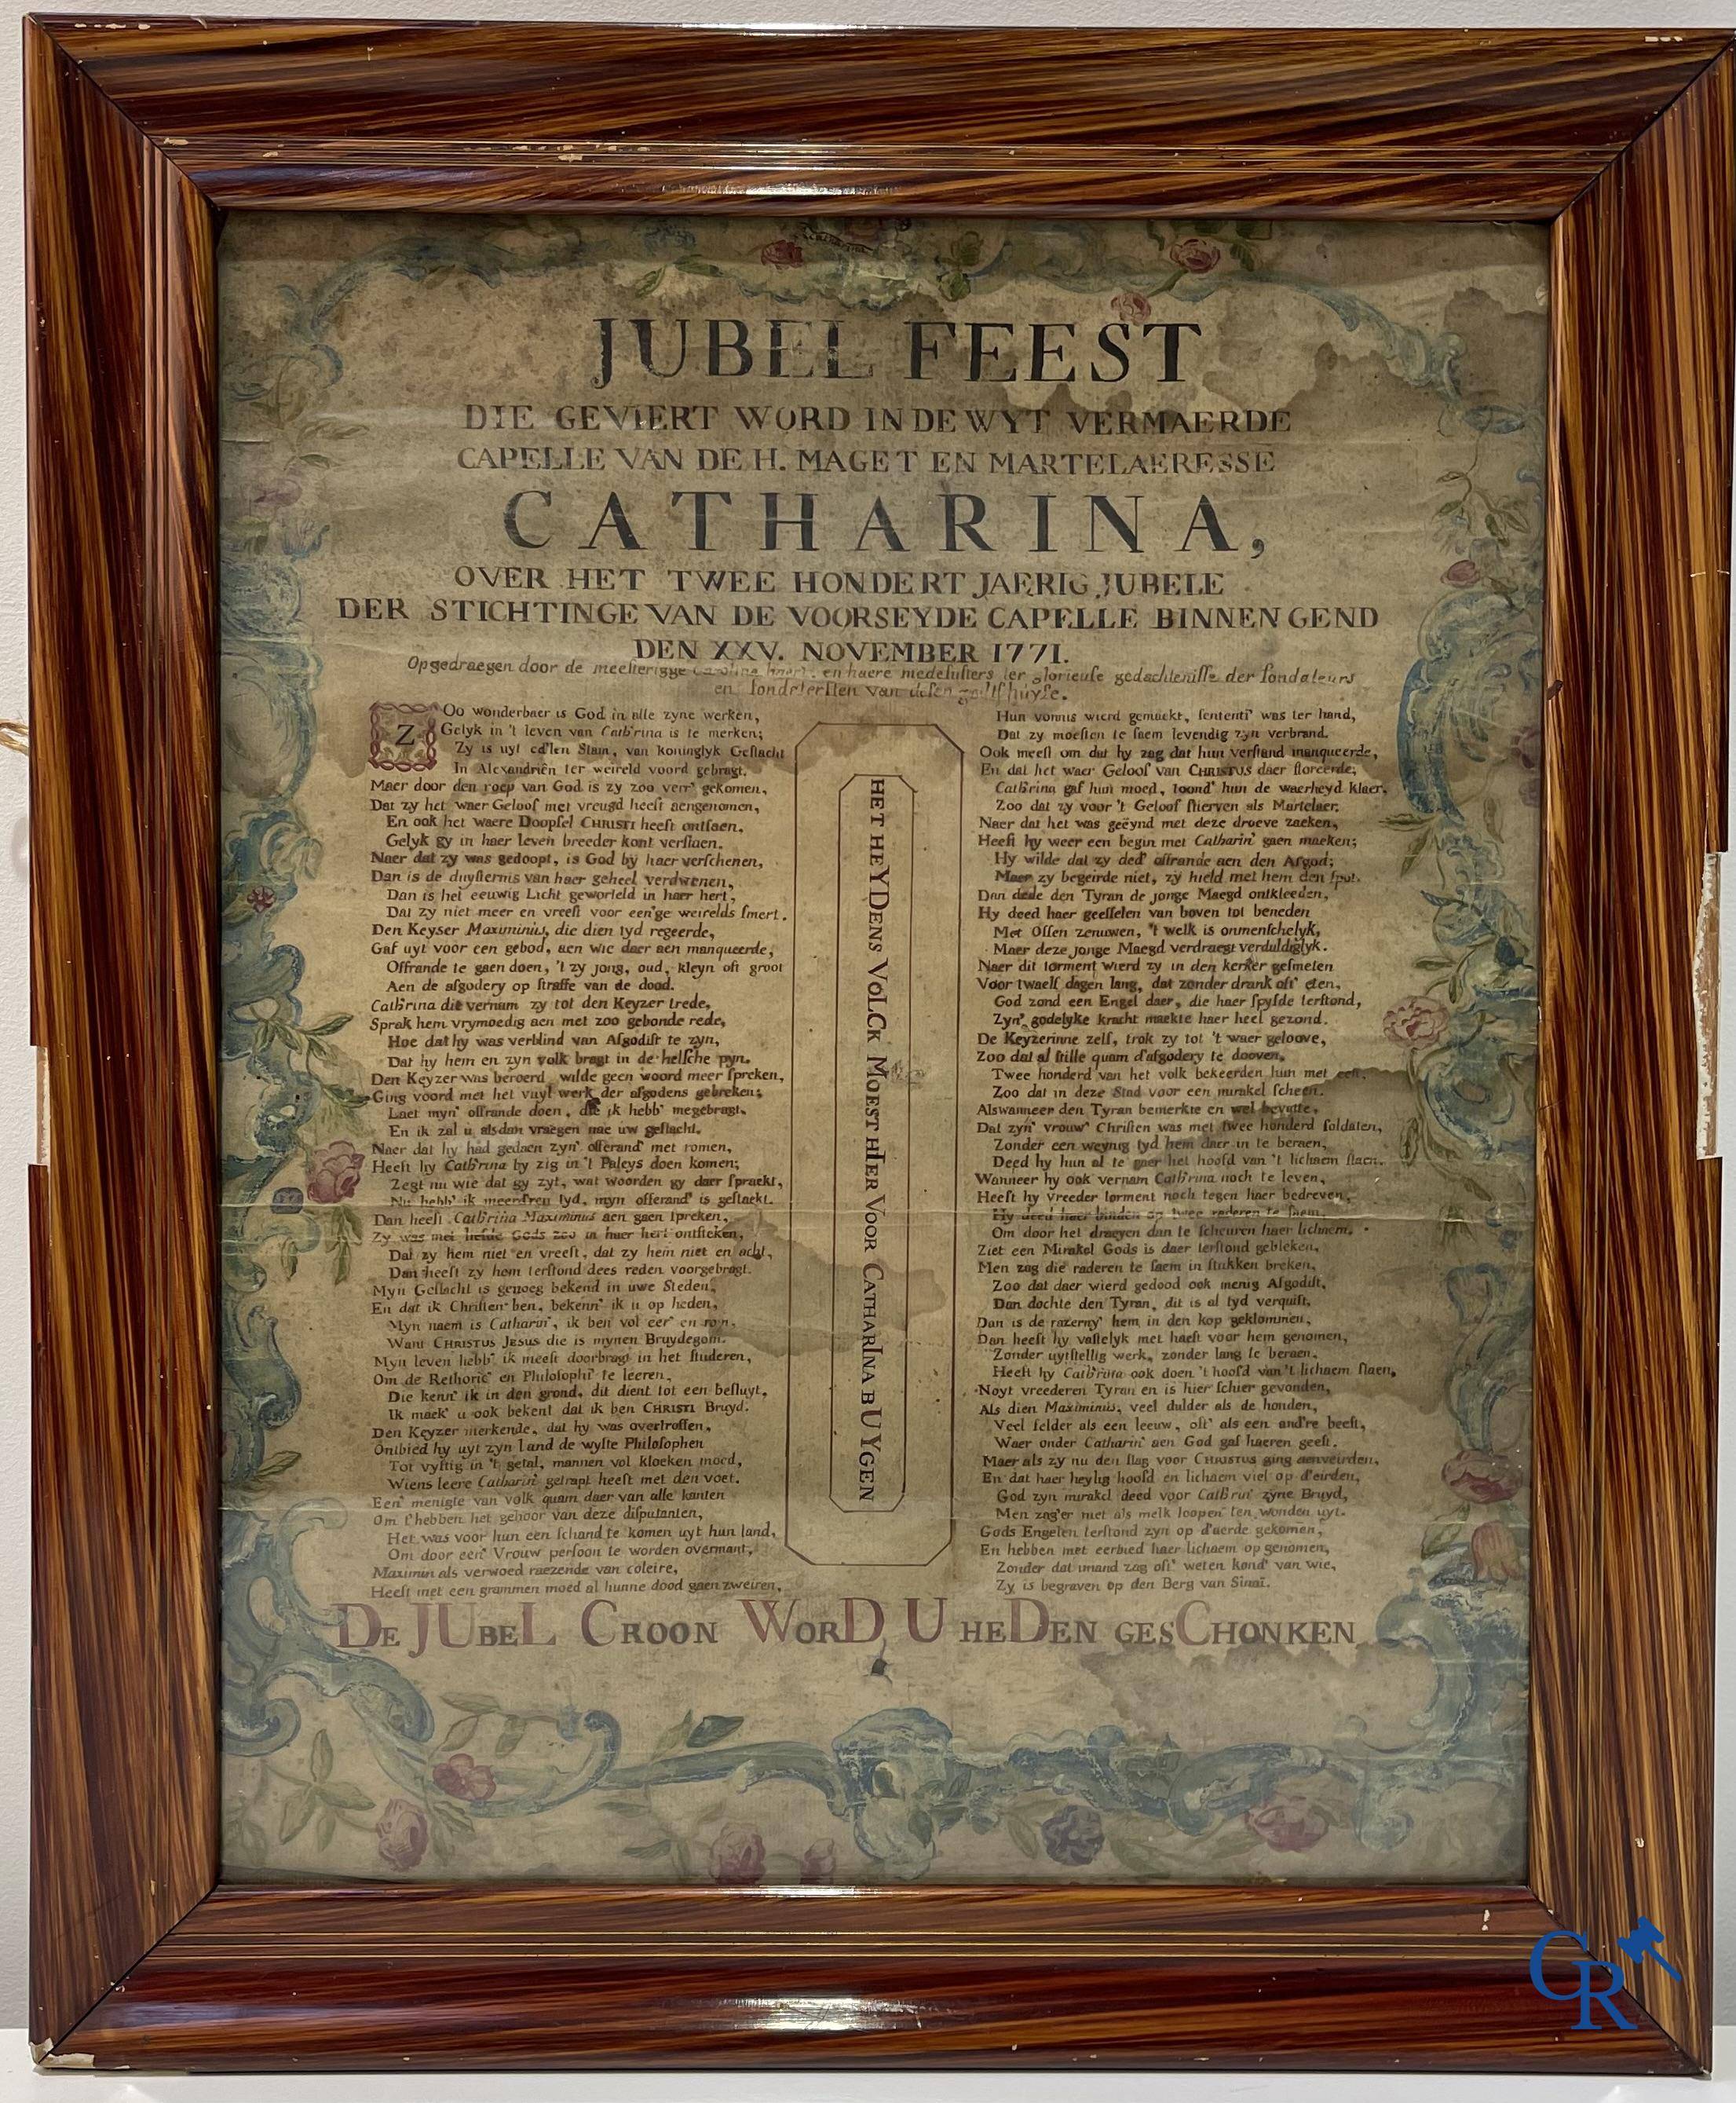 JUBEL FEEST
DIE GEVIERT WORD IN DE WYT VERMAERDE
CAPELLE VAN DE H. MAGET EN MARTELAERESSE
CATHARINA,
OVER HET TWEE HONDERT JAERIG JUBELE
DER STICHTINGE VAN DE VOORSEYDE CAPELLE BINNEN GEND
DEN XXV. NOVEMBER 1771.
Opgedraegen door de meesterigge en haere medesusters ter glorieuse gedachtenisse der fondateurs
en van desen
ZOo wonderbaer is God in alle zyne werken,
Gelyk in 't leven van Cath'rina is te merken;
Zy is uyt ed'len Stam, van koninglyk Geslacht
In Alexandriên ter weireld voord gebragt.
Maer door den roep van God is zy zoo verr' gekomen,
Dat zy het waer Geloof met vreugd heeft aengenomen,
En ook het waere Doopsel CHRISTI heeft ontfaen,
Gelyk gy in haer leven breeder kont verstaen.
Naer dat zy was gedoopt, is God by haer verschenen,
Dan is de duysternis van haer geheel verdwenen,
Dan is het eeuwig Licht geworteld in haer hert,
Dat zy niet meer en vreest voor een'ge weirelds smert.
Den Keyser Maximinius, die dien tyd regeerde,
Gaf uyt voor een gebod, aen wie daer aen manqueerde,
Offrande te gaen doen, 't zy jong, oud, kleyn oft groot
Aen de afgodery op straffe van de dood.
Cath'rina die vernam zy tot den Keyzer trede,
Sprak hem vrymoedig aen met zoo gebonde rede,
Hoe dat hy was verblind van Afgodist te zyn,
Dat hy hem en zyn volk bragt in de helsche pyn.
Den Keyzer was beroerd wilde geen woord meer spreken,
Ging voord met het vuyl werk der afgodens gebreken;
Laet myn' offrande doen, die ik hebb' megebragt,
En ik zal u alsdan vraegen nae uw geslacht.
Naer dat hy had gedaen zyn' offerand' met romen,
Heeft hy Cath'rina by zig in 't Paleys doen komen;
Zegt nu wie dat gy zyt, wat woorden gy daer spraekt,
Nu hebb' ik tyd, myn offerand' is gestaekt.
Dan heeft Cath'rina Maximinus aen gaen spreken,
Zy was met liefde Gods zoo in haer hert ontsteken,
Dat zy hem niet en vreest, dat zy hem niet en acht,
Dan heeft zy hem terstond dees reden voorgebragt.
Myn Geslacht is genoeg bekend in uwe Steden,
En dat ik Christen ben, bekenn' ik u op heden,
Myn naem is Catharin', ik ben vol eer' en
Want CHRISTUS JESUS die is mynen Bruydegom.
Myn leven hebb' ik meest doorbragt in het studeren,
Om de Rethoric' en Philosophi' te leeren,
Die kenn' ik in den grond, dit dient tot een besluyt,
Ik maek' u ook bekent dat ik ben CHRISTI Bruyd.
Den Keyzer merkende, dat hy was overtroffen,
Ontbied hy uyt zyn land de wyste Philosophen
Tot vyftig in 't getal, mannen vol kloeken moed,
Wiens leere Catharin' getrapt heeft met den voet.
Een' menigte van volk quam daer van alle kanten
Om t'hebben het gehoor van deze disputanten,
Het was voor hun een schand te komen uyt hun land,
Om door een' Vrouw persoon te worden overmant,
Maximin als verwoed raezende van coleire,
Heeft met een grammen moed al hunne dood gaen zweiren,
HET HEYDENS VOLCK MOEST HIER VOOR CATHARINA BUYGEN
Hun vonnis wierd gemaekt, sententi' was ter hand,
Dat zy moesten te saem levendig zyn verbrand.
Ook meest om dat hy zag dat hun verstand manqueerde,
En dat het waer Geloof van CHRISTUS daer floreerde;
Cath'rina gaf hun moed, toond' hun de waerheyd klaer,
Zoo dat zy voor 't Geloof stierven als Martelaer.
Naer dat het was geëynd met deze droeve zaeken,
Heeft hy weer een begin met Catharin' gaen maeken;
Hy wilde dat zy ded' offrande aen den Afgod;
Maer zy begeirde niet, zy hield met hem den spot.
Dan dede den Tyran de jonge Maegd ontkleeden,
Hy deed haer geesselen van boven tot beneden
Met Ossen zenuwen, 't welk is onmenschelyk,
Maer deze jonge Maegd verdraegt verduldiglyk.
Naer dit torment wierd zy in den kerker gesmeten
Voor twaelf dagen lang, dat zonder drank oft' eten,
God zond een Engel daer, die haer spysde terstond,
Zyn' godelyke kracht maekte haer heel gezond.
De Keyzerinne zelf, trok zy tot 't waer geloove,
Zoo dat al stille quam d'afgodery te dooven,
Twee honderd van het volk bekeerden hun met een,
Zoo dat in deze Stad voor een mirakel scheen.
Alswanneer den Tyran bemerkte en wel bevatte,
Dat zyn' vrouw' Christen was met twee honderd soldaten,
Zonder een weynig tyd hem daer in te beraen,
Deed hy hun al te gaer het hoofd van 't lichaem slaen.
Wanneer hy ook vernam Cath'rina noch te leven,
Heeft hy vreeder torment noch tegen haer bedreven,
Hy deed haer binden op twee raderen te saem,
Om door het draeyen dan te scheuren haer lichaem.
Ziet een Mirakel Gods is daer terstond gebleken,
Men zag die raderen te saem in stukken breken,
Zoo dat daer wierd gedood ook menig Afgodist,
Dan dochte den Tyran, dit is al tyd verquist.
Dan is de razerny' hem in den kop geklommen,
Dan heeft hy vastelyk met haest voor hem genomen,
Zonder uytstellig werk, zonder lang te beraen,
Heeft hy Cath'rina ook doen 't hoofd van 't lichaem slaen,
Noyt vreederen Tyran en is hier schier gevonden,
Als dien Maximinius, veel dulder als de honden,
Veel felder als een leeuw, oft' als een and're beest,
Waer onder Catharin' aen God gaf haeren geest.
Maer als zy nu den slag voor CHRISTUS ging aenveirden,
En dat haer heylig hoofd en lichaem viel op d'eirden,
God zyn mirakel deed voor Cath'rin' zyne Bruyd,
Men zag'er niet als melk loopen ten wonden uyt.
Gods Engelen terstond zyn op d'aerde gekomen,
En hebben met eerbied haer lichaem op genomen,
Zonder dat imand zag oft' weten kond' van wie,
Zy is begraven op den Berg van Sinaï.
DE JUBEL CROON WORD U HEDEN GESCHONKEN
CR